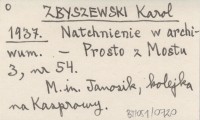 o
ZBYSZEWSKI Karol
1937. Natchnienie w archi-
wum. - Prosto z Mostu
3, nr 54.
M. in. Janosik, kolejka
na Kasprowy.